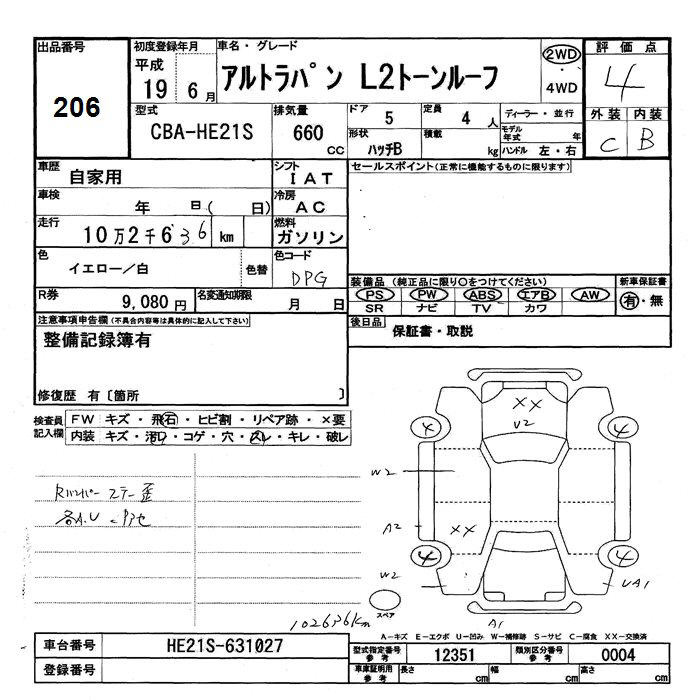 出品番号
206
初度登録年月
平成
19 6月
車名・グレード
アルトラパン L2トーンルーフ
2WD
・
4WD
評価点
4
外装 内装
C B
型式
CBA-HE21S
排気量
660
CC
ドア 5
定員 4 人
形状 ハッチB
積載 kg
ディーラー・並行
モデル年式 年
ハンドル 左・右
車歴
自家用
シフト
IAT
セールスポイント(正常に機能するものに限ります)
車検
年 日( 日)
冷房
AC
走行
10万2千636 km
燃料
ガソリン
色
イエロー/白
色替
色コード
DPG
装備品 (純正品に限り○をつけてください)
新車保証書
PS PW ABS エアB AW
有・無
SR ナビ TV カワ
R券
9,080円
名変通知期限
月 日
後日品
保証書・取説
注意事項申告欄(不具合内容等は具体的に記入して下さい)
整備記録簿有
修復歴 有〔箇所 〕
検査員記入欄
FW キズ・飛石・ヒビ割・リペア跡・×要
内装 キズ・汚レ・コゲ・穴・スレ・キレ・破レ
Rバンパー ステー 歪
各A.U
102636km
XX
U2
W2
A2
XX
W2
UA1
A1
4
4
4
4
スペア
A-キズ E-エクボ U-凹み W-補修跡 S-サビ C-腐食 XX-交換済
車台番号
HE21S-631027
登録番号
型式指定番号 参考
12351
類別区分番号 参考
0004
車庫証明用 参考
長さ cm
幅 cm
高さ cm